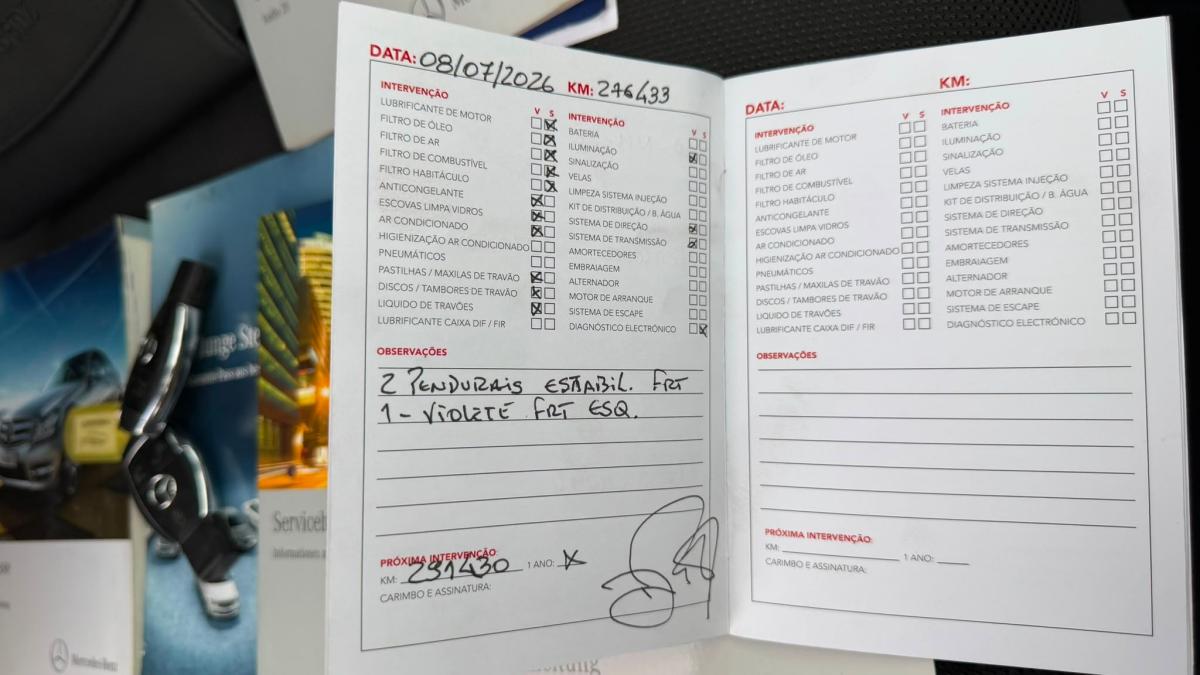 DATA: 08/07/2026 KM: 276433
INTERVENÇÃO V S
LUBRIFICANTE DE MOTOR
FILTRO DE ÓLEO
FILTRO DE AR
FILTRO DE COMBUSTÍVEL
FILTRO HABITÁCULO
ANTICONGELANTE
ESCOVAS LIMPA VIDROS
AR CONDICIONADO
HIGIENIZAÇÃO AR CONDICIONADO
PNEUMÁTICOS
PASTILHAS / MAXILAS DE TRAVÃO
DISCOS / TAMBORES DE TRAVÃO
LIQUIDO DE TRAVÕES
LUBRIFICANTE CAIXA DIF / FIR
INTERVENÇÃO V S
BATERIA
ILUMINAÇÃO
SINALIZAÇÃO
VELAS
LIMPEZA SISTEMA INJEÇÃO
KIT DE DISTRIBUIÇÃO / B. ÁGUA
SISTEMA DE DIREÇÃO
SISTEMA DE TRANSMISSÃO
AMORTECEDORES
EMBRAIAGEM
ALTERNADOR
MOTOR DE ARRANQUE
SISTEMA DE ESCAPE
DIAGNÓSTICO ELECTRÓNICO
OBSERVAÇÕES
2 PENDURAIS ESTABIL. FRT
1 - VIOLETE FRT ESQ.
PRÓXIMA INTERVENÇÃO:
KM: 291430 1 ANO: X
CARIMBO E ASSINATURA:
DATA: KM:
INTERVENÇÃO V S
LUBRIFICANTE DE MOTOR
FILTRO DE ÓLEO
FILTRO DE AR
FILTRO DE COMBUSTÍVEL
FILTRO HABITÁCULO
ANTICONGELANTE
ESCOVAS LIMPA VIDROS
AR CONDICIONADO
HIGIENIZAÇÃO AR CONDICIONADO
PNEUMÁTICOS
PASTILHAS / MAXILAS DE TRAVÃO
DISCOS / TAMBORES DE TRAVÃO
LIQUIDO DE TRAVÕES
LUBRIFICANTE CAIXA DIF / FIR
INTERVENÇÃO V S
BATERIA
ILUMINAÇÃO
SINALIZAÇÃO
VELAS
LIMPEZA SISTEMA INJEÇÃO
KIT DE DISTRIBUIÇÃO / B. ÁGUA
SISTEMA DE DIREÇÃO
SISTEMA DE TRANSMISSÃO
AMORTECEDORES
EMBRAIAGEM
ALTERNADOR
MOTOR DE ARRANQUE
SISTEMA DE ESCAPE
DIAGNÓSTICO ELECTRÓNICO
OBSERVAÇÕES
PRÓXIMA INTERVENÇÃO:
KM: 1 ANO:
CARIMBO E ASSINATURA:
Mercedes-Benz